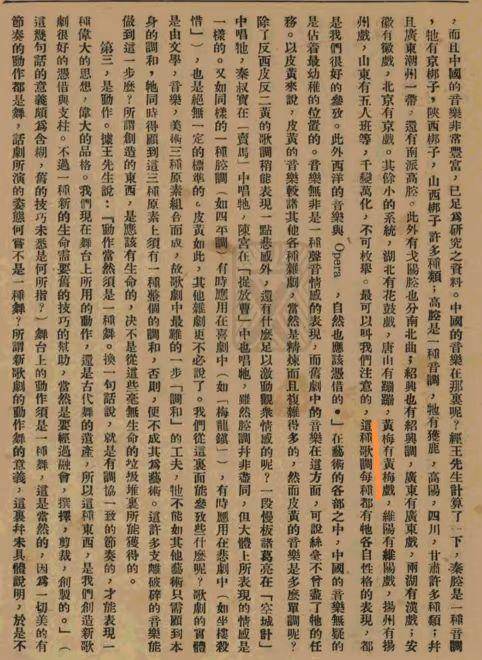 ，而且中國的音樂非常豐富，已足為研究之資料。中國的音樂在那裏呢？經王先生計算了一下，秦腔是一種音調
，牠有京梆子，陝西梆子，山西梆子許多種類；高腔是一種音調，牠有獲鹿，高陽，四川，甘肅許多種類；幷
且廣東潮州一帶，還有南派高腔。此外有弋陽腔也分南北曲；紹興也有紹興調，廣東有廣東戲，兩湖有漢戲；安
徽有徽戲，北京有京戲。其餘小的系統，湖北有花鼓戲，唐山有蹦蹦，黃梅有黃梅戲，維陽有維陽戲，揚州有揚
州戲，山東有五人班等，千變萬化，不可枚舉。最可以叫我們注意的，這種歌調每種都有牠各自性格的表現，都
是我們很好的參攷。此外西洋的音樂與 Opera ，自然也應該憑借的。」在藝術的各部之中，中國的音樂無疑的
是佔着最幼稚的位置的。音樂無非是一種聲音情感的表現，而舊劇中的音樂在這方面，可說絲毫不曾盡了牠的任
移。以皮黃來說，皮黃的音樂較諸其他各種雜劇，當然是精煉而且複雜得多的，然而皮黃的音樂是多麼單調呢？
除了反西皮反二黃的歌調稍能表現一點悲感外，還有什麼足以激動觀衆情感的呢？一段慢板諸葛亮在「空城計」
中唱牠，秦叔寶在「賣馬」中唱牠，陳宮在「捉放曹」中也唱牠，雖然腔調幷非盡同，但大體上所表現的情感是
一樣的。又如同樣的一種腔調（如四平調）有時應用在喜劇中（如「梅龍鎮」），有時應用在悲劇中（如坐樓殺
惜」），也是絕無一定的標準的。皮黃如此，其他雜劇更不必說了。我們從這裏面能參攷些什麼呢？歌劇的實體
是由文學，音樂，美術三種原素組合而成，故歌劇中最難的一步「調和」的工夫，牠不能如其他藝術只需顧到本
身的調和，牠同時得顧到這三種原素上須有一種整個的調和，否則，便不成其為藝術。這許多支離破碎的音樂能
做到這一步麼？所謂創造的東西，是應該有生命的，決不是從這些毫無生命的垃圾堆裏所能獲得的。
第三，是動作。據王先生說：「動作當然須是一種舞，換一句話說，就是有調協一致的節奏的，才能表現一
種偉大的思想，偉大的品格。我們現在舞台上所用的動作，還是古代舞的遺產，所以這種東西，是我們創造新歌
劇很好的憑借與支柱。不過一種新的生命需要舊的技巧的幫助，當然是要經過融會，撰擇，剪裁，創製的。」（
這幾句話的意義頗為含糊，舊的技巧未悉是何所指？）舞台上的動作須是一種舞，這是當然的，因為一切美的有
節奏的動作都是舞，話劇所演的姿態何嘗不是一種舞？所謂新歌劇的動作舞的意義，這裏幷未具體說明，於是不